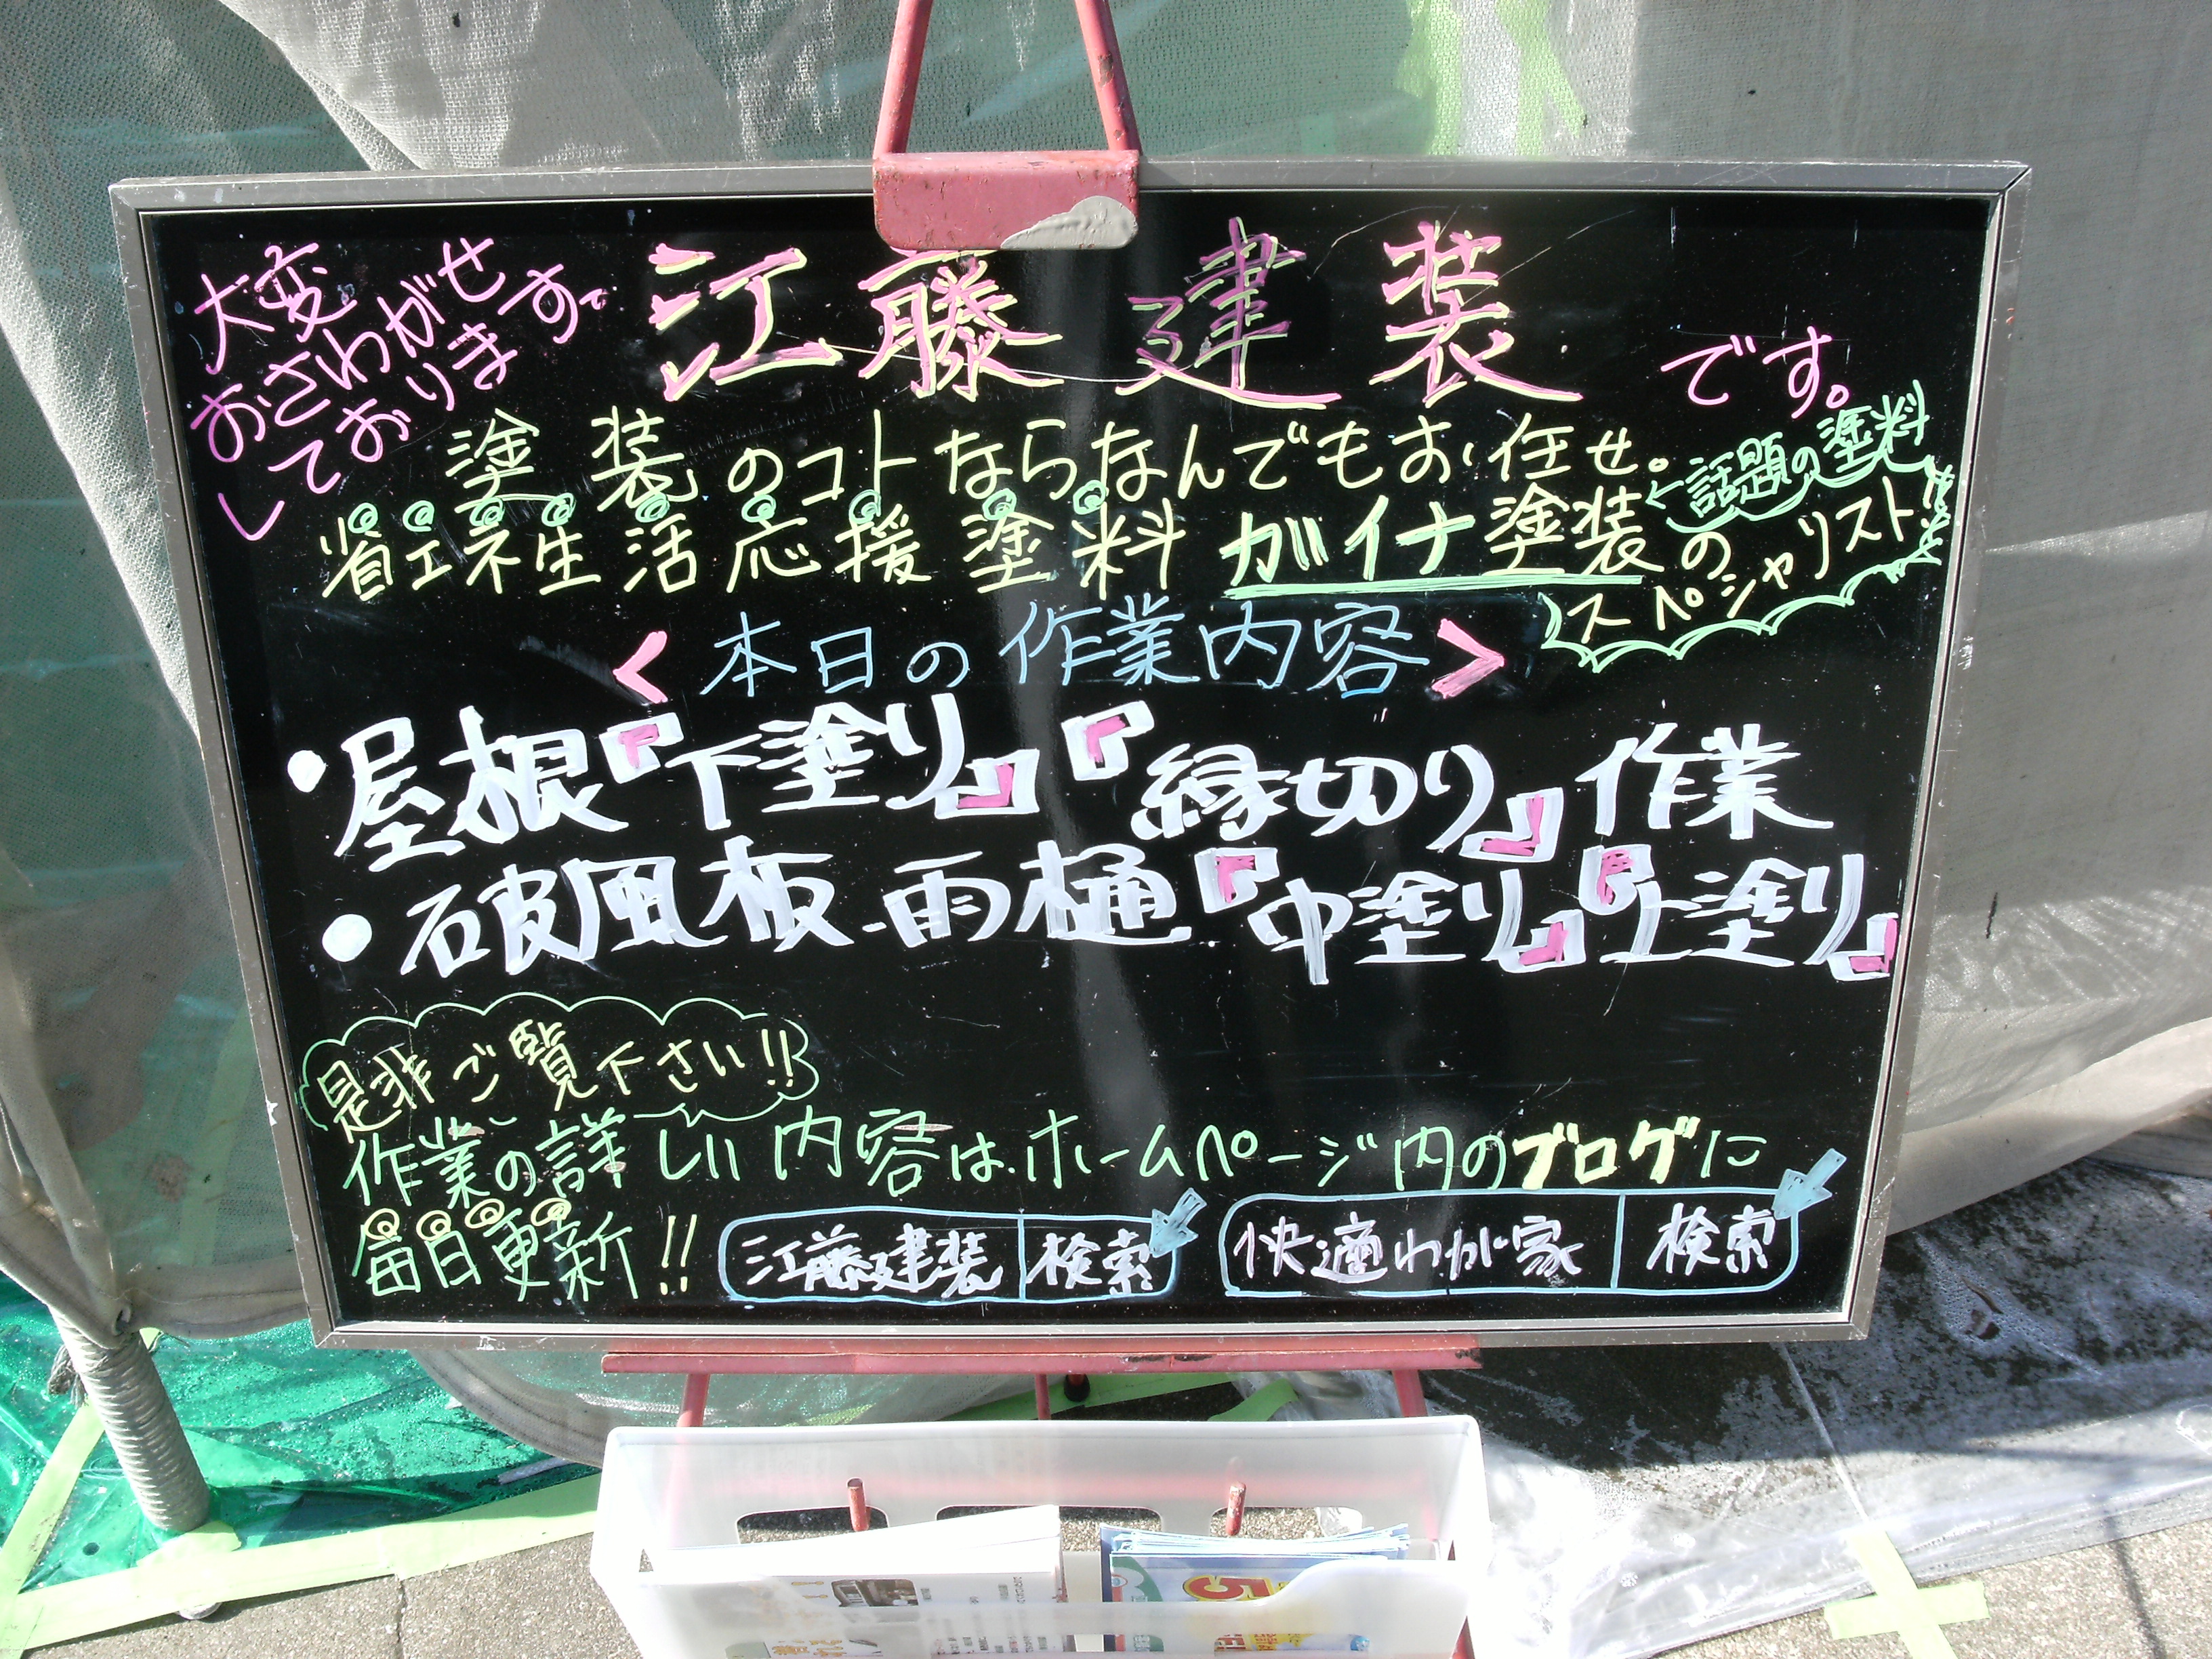 大変
おさわがせ
しております。
江藤建装です。
塗装のコトならなんでもお任せ。
←話題の塗料
省エネ生活応援塗料 ガイナ塗装の
スペシャリスト
<本日の作業内容>
・屋根『下塗り』『縁切り』作業
・破風板・雨樋『中塗り』『上塗り』
是非ご覧下さい!!
作業の詳しい内容は、ホームページ内のブログに
毎日更新!!
江藤建装 検索
快適わが家 検索
5